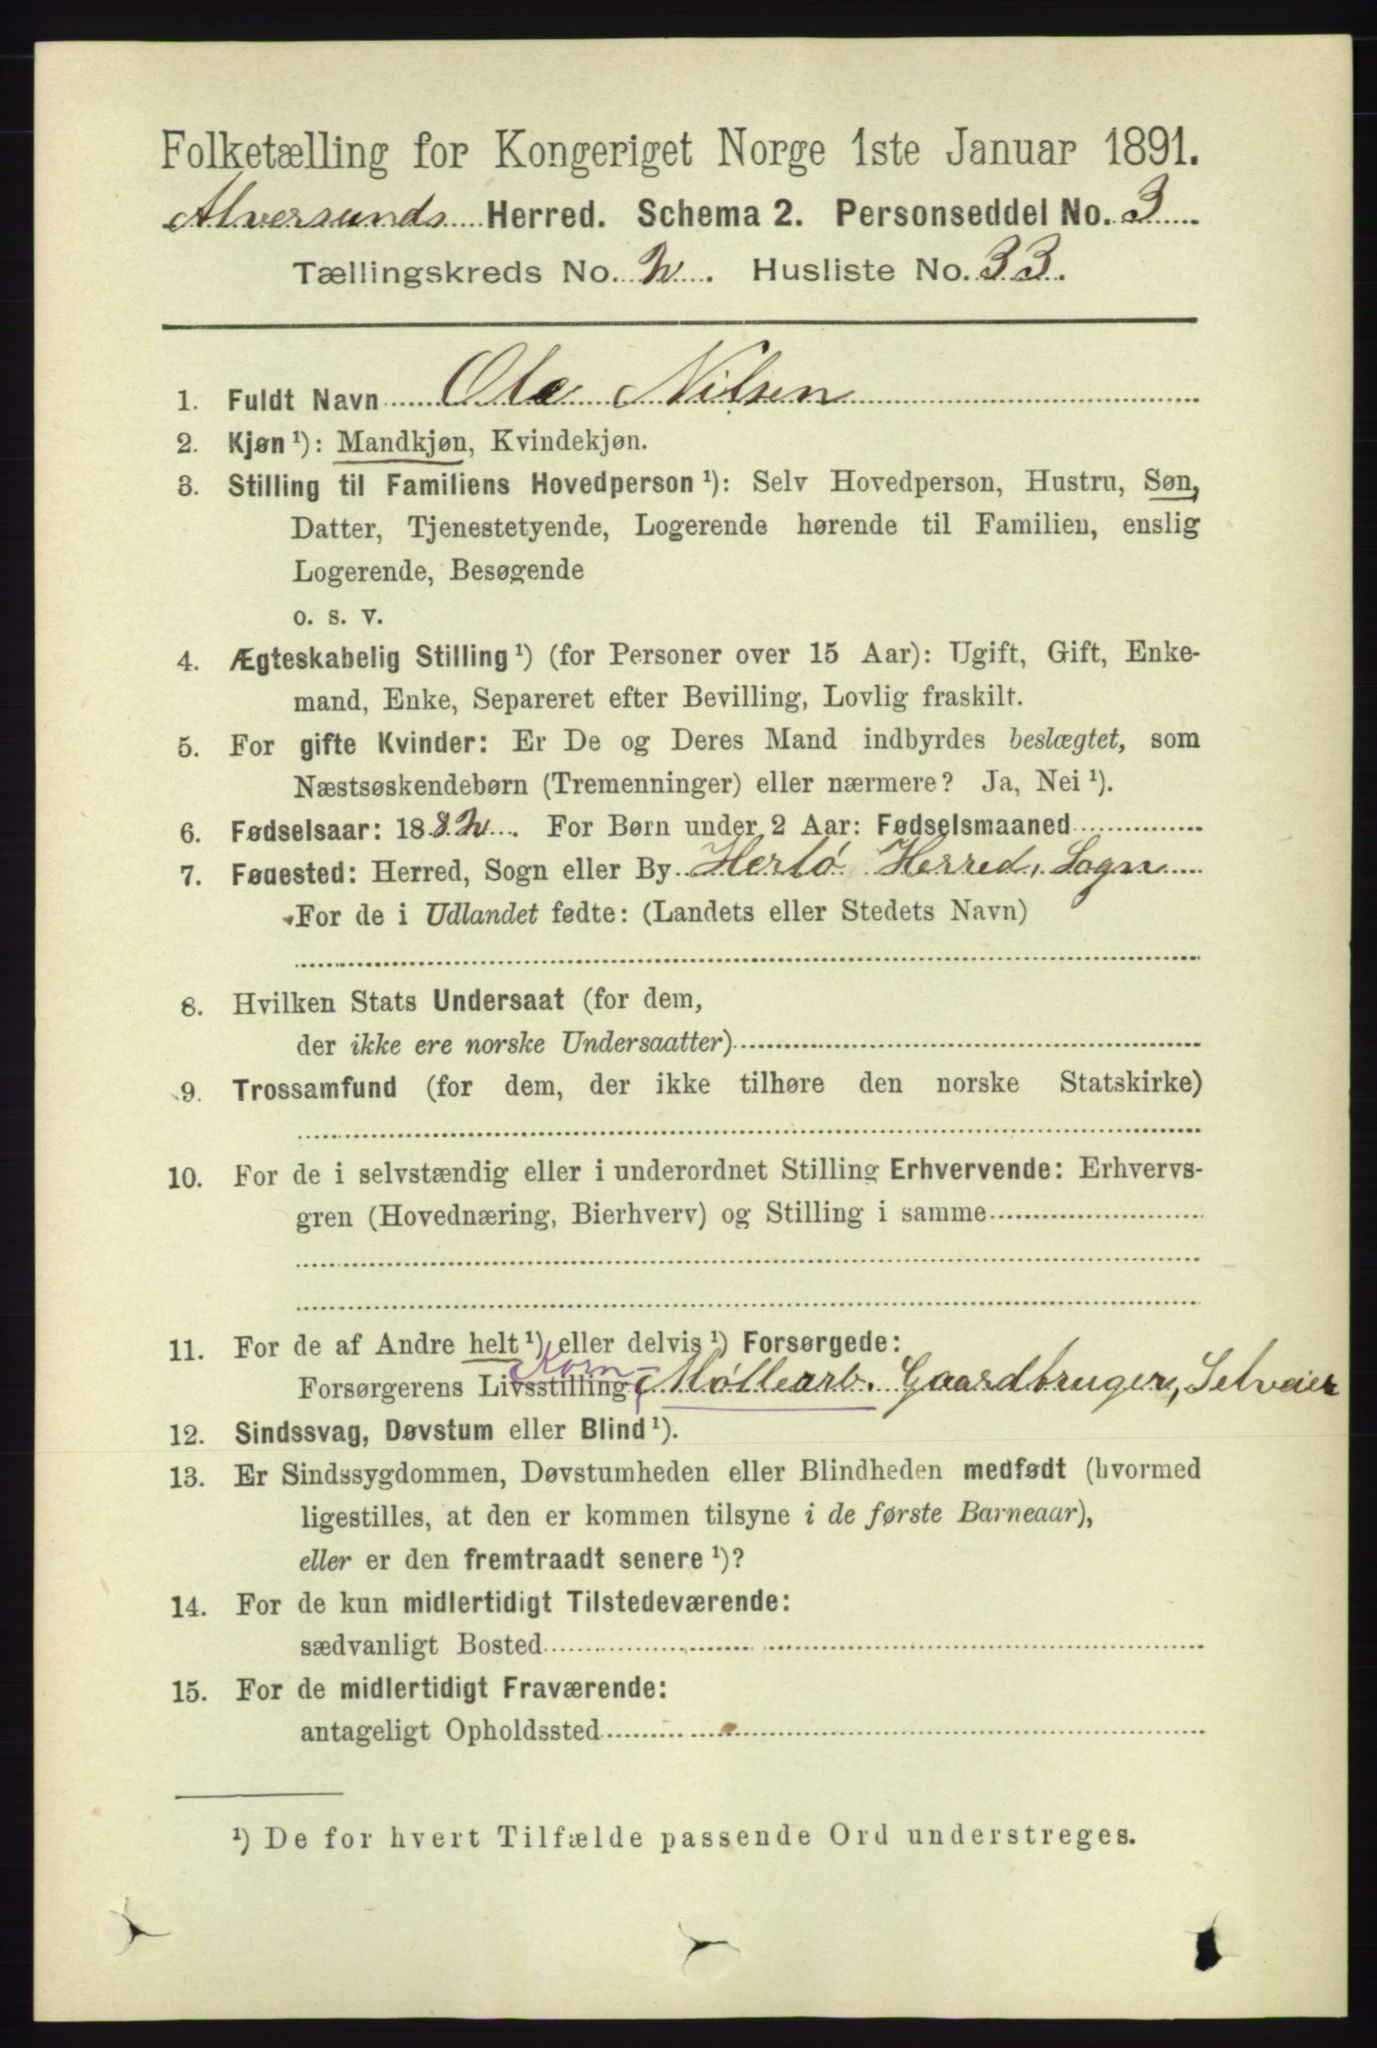 Folketælling for Kongeriget Norge 1ste Januar 1891.
Alversunds Herred. Schema 2. Personseddel No. 3
Tællingskreds No. 2. Husliste No. 33.
1. Fuldt Navn Ole Nilsen
2. Kjøn ¹): Mandkjøn, Kvindekjøn.
3. Stilling til Familiens Hovedperson ¹): Selv Hovedperson, Hustru, Søn,
Datter, Tjenestetyende, Logerende hørende til Familien, enslig
Logerende, Besøgende
o. s. v.
4. Ægteskabelig Stilling ¹) (for Personer over 15 Aar): Ugift, Gift, Enke-
mand, Enke, Separeret efter Bevilling, Lovlig fraskilt.
5. For gifte Kvinder: Er De og Deres Mand indbyrdes beslægtet, som
Næstsøskendebørn (Tremenninger) eller nærmere? Ja, Nei ¹).
6. Fødselsaar: 1882. For Børn under 2 Aar: Fødselsmaaned
7. Føuested: Herred, Sogn eller By Herlø Herred, Sogn
For de i Udlandet fødte: (Landets eller Stedets Navn)
8. Hvilken Stats Undersaat (for dem,
der ikke ere norske Undersaatter)
9. Trossamfund (for dem, der ikke tilhøre den norske Statskirke)
10. For de i selvstændig eller i underordnet Stilling Erhvervende: Erhvervs-
gren (Hovednæring, Bierhverv) og Stilling i samme
11. For de af Andre helt ¹) eller delvis ¹) Forsørgede:
Korn-
Forsørgerens Livsstilling, Møllearb. Gaardbruger, Selveier
12. Sindssvag, Døvstum eller Blind ¹).
13. Er Sindssygdommen, Døvstumheden eller Blindheden medfødt (hvormed
ligestilles, at den er kommen tilsyne i de første Barneaar),
eller er den fremtraadt senere ¹)?
14. For de kun midlertidigt Tilstedeværende:
sædvanligt Bosted
15. For de midlertidigt Fraværende:
antageligt Opholdssted
¹) De for hvert Tilfælde passende Ord understreges.